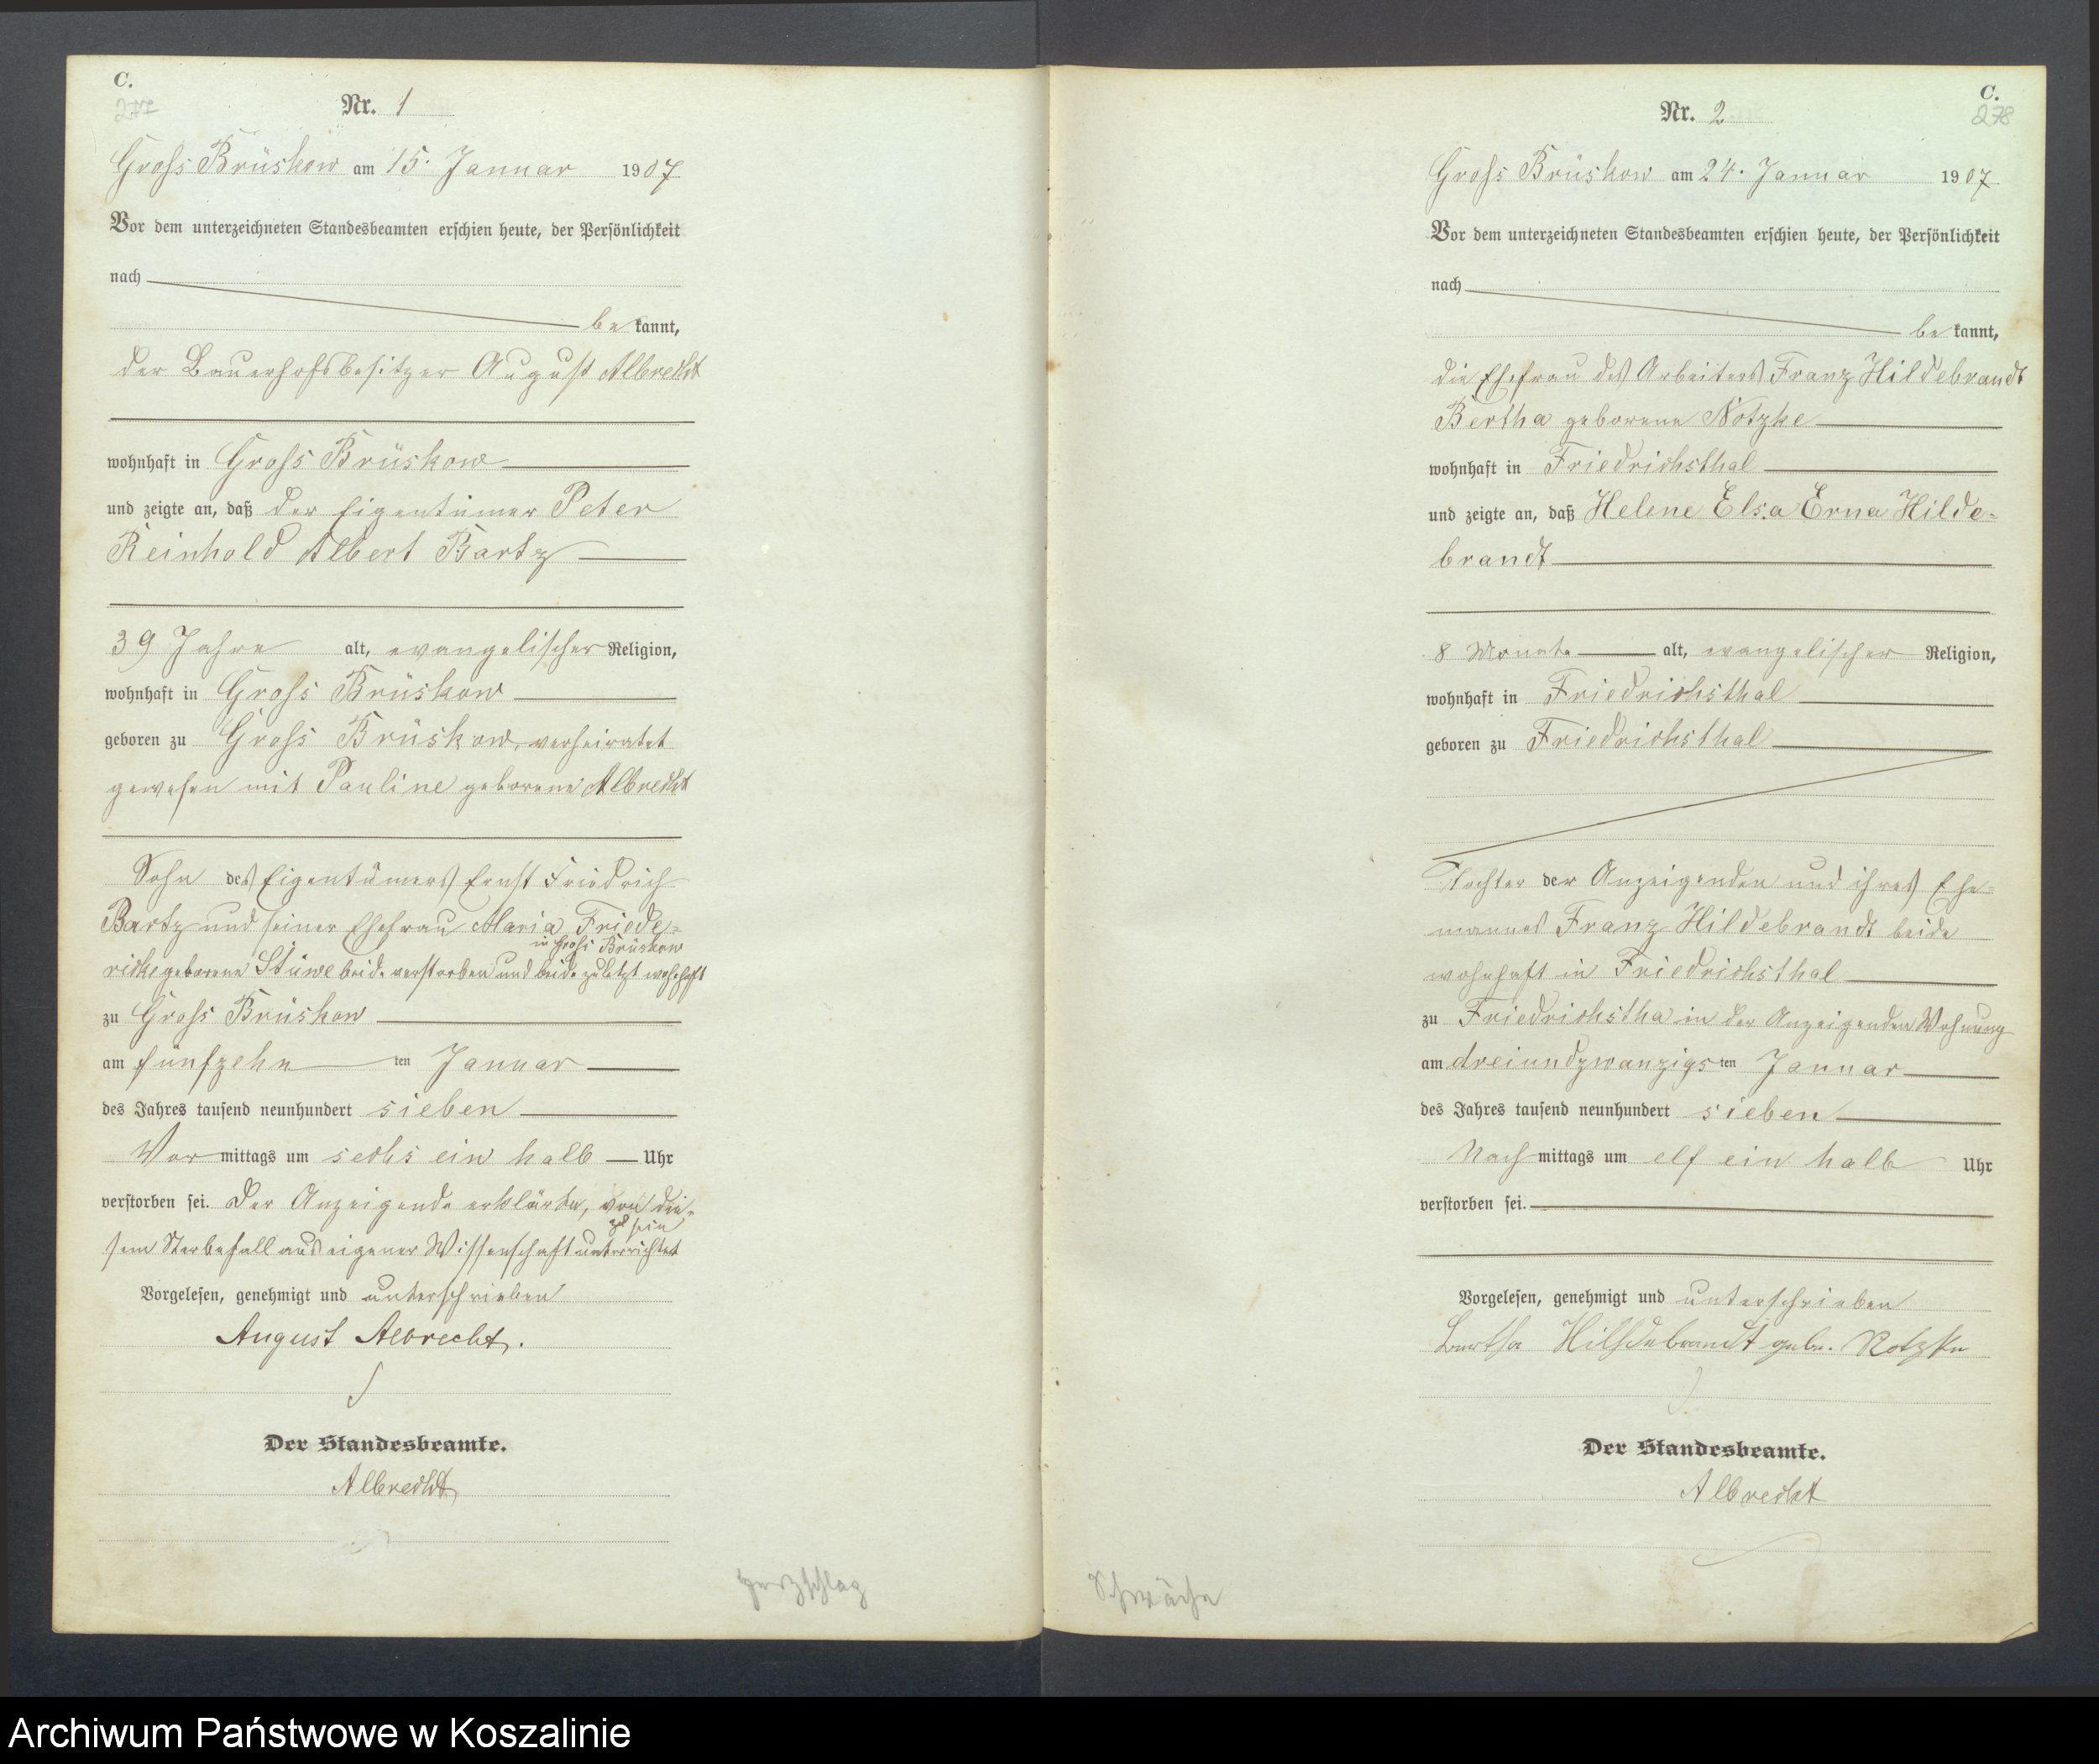 C.
277
Nr. 1
Gross Brüskow am 15. Januar 1907
Vor dem unterzeichneten Standesbeamten erschien heute, der Persönlichkeit
nach
be kannt,
der Bauerhofsbesitzer August Albrecht
wohnhaft in Gross Brüskow
und zeigte an, daß der Eigentümer Peter
Reinhold Albert Bartz
39 Jahre alt, evangelischer Religion,
wohnhaft in Gross Brüskow
geboren zu Gross Brüskow, verheiratet
gewesen mit Pauline geborene Albrecht
Sohn des Eigentümers Ernst Friedrich
Bartz und seiner Ehefrau Maria Friede-
in Gross Brüskow
ricke geborene Stüwe beide verstorben und beide zuletzt wohnhaft
zu Gross Brüskow
am fünfzehn ten Januar
des Jahres tausend neunhundert sieben
Vor mittags um sechs ein halb Uhr
verstorben sei. Der Anzeigende erklärte, von die-
zu sein
sem Sterbefall aus eigener Wissenschaft unterrichtet
Vorgelesen, genehmigt und unterschrieben
August Albrecht.
Der Standesbeamte.
Albrecht
Herzschlag
C.
278
Nr. 2
Gross Brüskow am 24. Januar 1907
Vor dem unterzeichneten Standesbeamten erschien heute, der Persönlichkeit
nach
be kannt,
die Ehefrau des Arbeiters Franz Hildebrandt
Bertha geborene Notzke
wohnhaft in Friedrichsthal
und zeigte an, daß Helene Elsa Erna Hilde-
brandt
8 Monate alt, evangelischer Religion,
wohnhaft in Friedrichsthal
geboren zu Friedrichsthal
Tochter der Anzeigenden und ihres Ehe-
mannes Franz Hildebrandt beide
wohnhaft in Friedrichsthal
zu Friedrichstha in der Anzeigenden Wohnung
am dreiundzwanzigs ten Januar
des Jahres tausend neunhundert sieben
Nach mittags um elf ein halb Uhr
verstorben sei.
Vorgelesen, genehmigt und unterschrieben
Bertha Hildebrandt geb. Notzke
Der Standesbeamte.
Albrecht
Schwäche
Archiwum Państwowe w Koszalinie